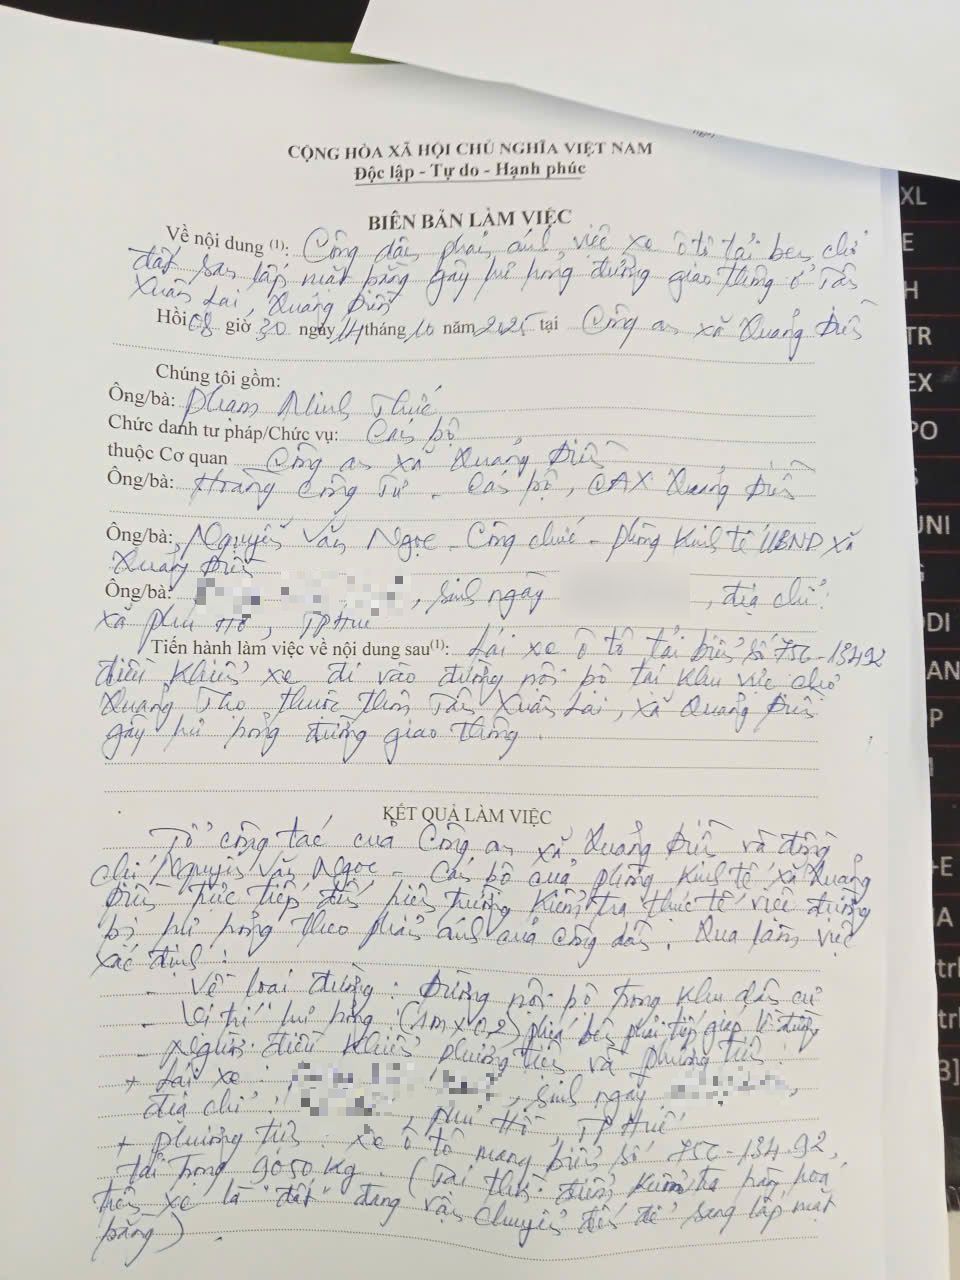 CỘNG HÒA XÃ HỘI CHỦ NGHĨA VIỆT NAM
Độc lập - Tự do - Hạnh phúc
BIÊN BẢN LÀM VIỆC
Về nội dung (1): Công dân phản ánh việc xe ô tô tải ben chở
đất san lấp mặt bằng gây hư hỏng đường giao thông ở Tân
Xuân Lai, Quảng Điền
Hồi 08 giờ 30 ngày 14 tháng 10 năm 2025 tại Công an xã Quảng Điền
Chúng tôi gồm:
Ông/bà: Phạm Minh Thức
Chức danh tư pháp/Chức vụ: Cán bộ
thuộc Cơ quan Công an xã Quảng Điền
Ông/bà: Hoàng Công Tư - Cán bộ, CAX Quảng Điền
Ông/bà: Nguyễn Văn Ngọc - Công chức - phòng Kinh tế UBND xã
Quảng Điền
Ông/bà: , sinh ngày , địa chỉ:
xã Phú Hồ, TP Huế
Tiến hành làm việc về nội dung sau(1): Lái xe ô tô tải biển số 75C-13492
điều khiển xe đi vào đường nội bộ tại khu vực chợ
Quảng Thọ thuộc thôn Tân Xuân Lai, xã Quảng Điền
gây hư hỏng đường giao thông.
KẾT QUẢ LÀM VIỆC
Tổ công tác của Công an xã Quảng Điền và đồng
chí Nguyễn Văn Ngọc - Cán bộ của phòng Kinh tế xã Quảng
Điền trực tiếp đến hiện trường kiểm tra thực tế việc đường
bị hư hỏng theo phản ánh của công dân. Qua làm việc
xác định:
- Về loại đường: Đường nội bộ trong khu dân cư
- Vị trí hư hỏng: (1m x 0,2) phía bên phải tiếp giáp lề đường
- Người điều khiển phương tiện và phương tiện:
+ Lái xe: , sinh ngày ,
địa chỉ: , Phú Hồ, TP Huế
+ Phương tiện: xe ô tô mang biển số 75C-134.92,
tải trọng 9050 kg. (Tại thời điểm kiểm tra hàng hoá
trên xe là "đất" đang vận chuyển đến để sang lấp mặt
bằng).